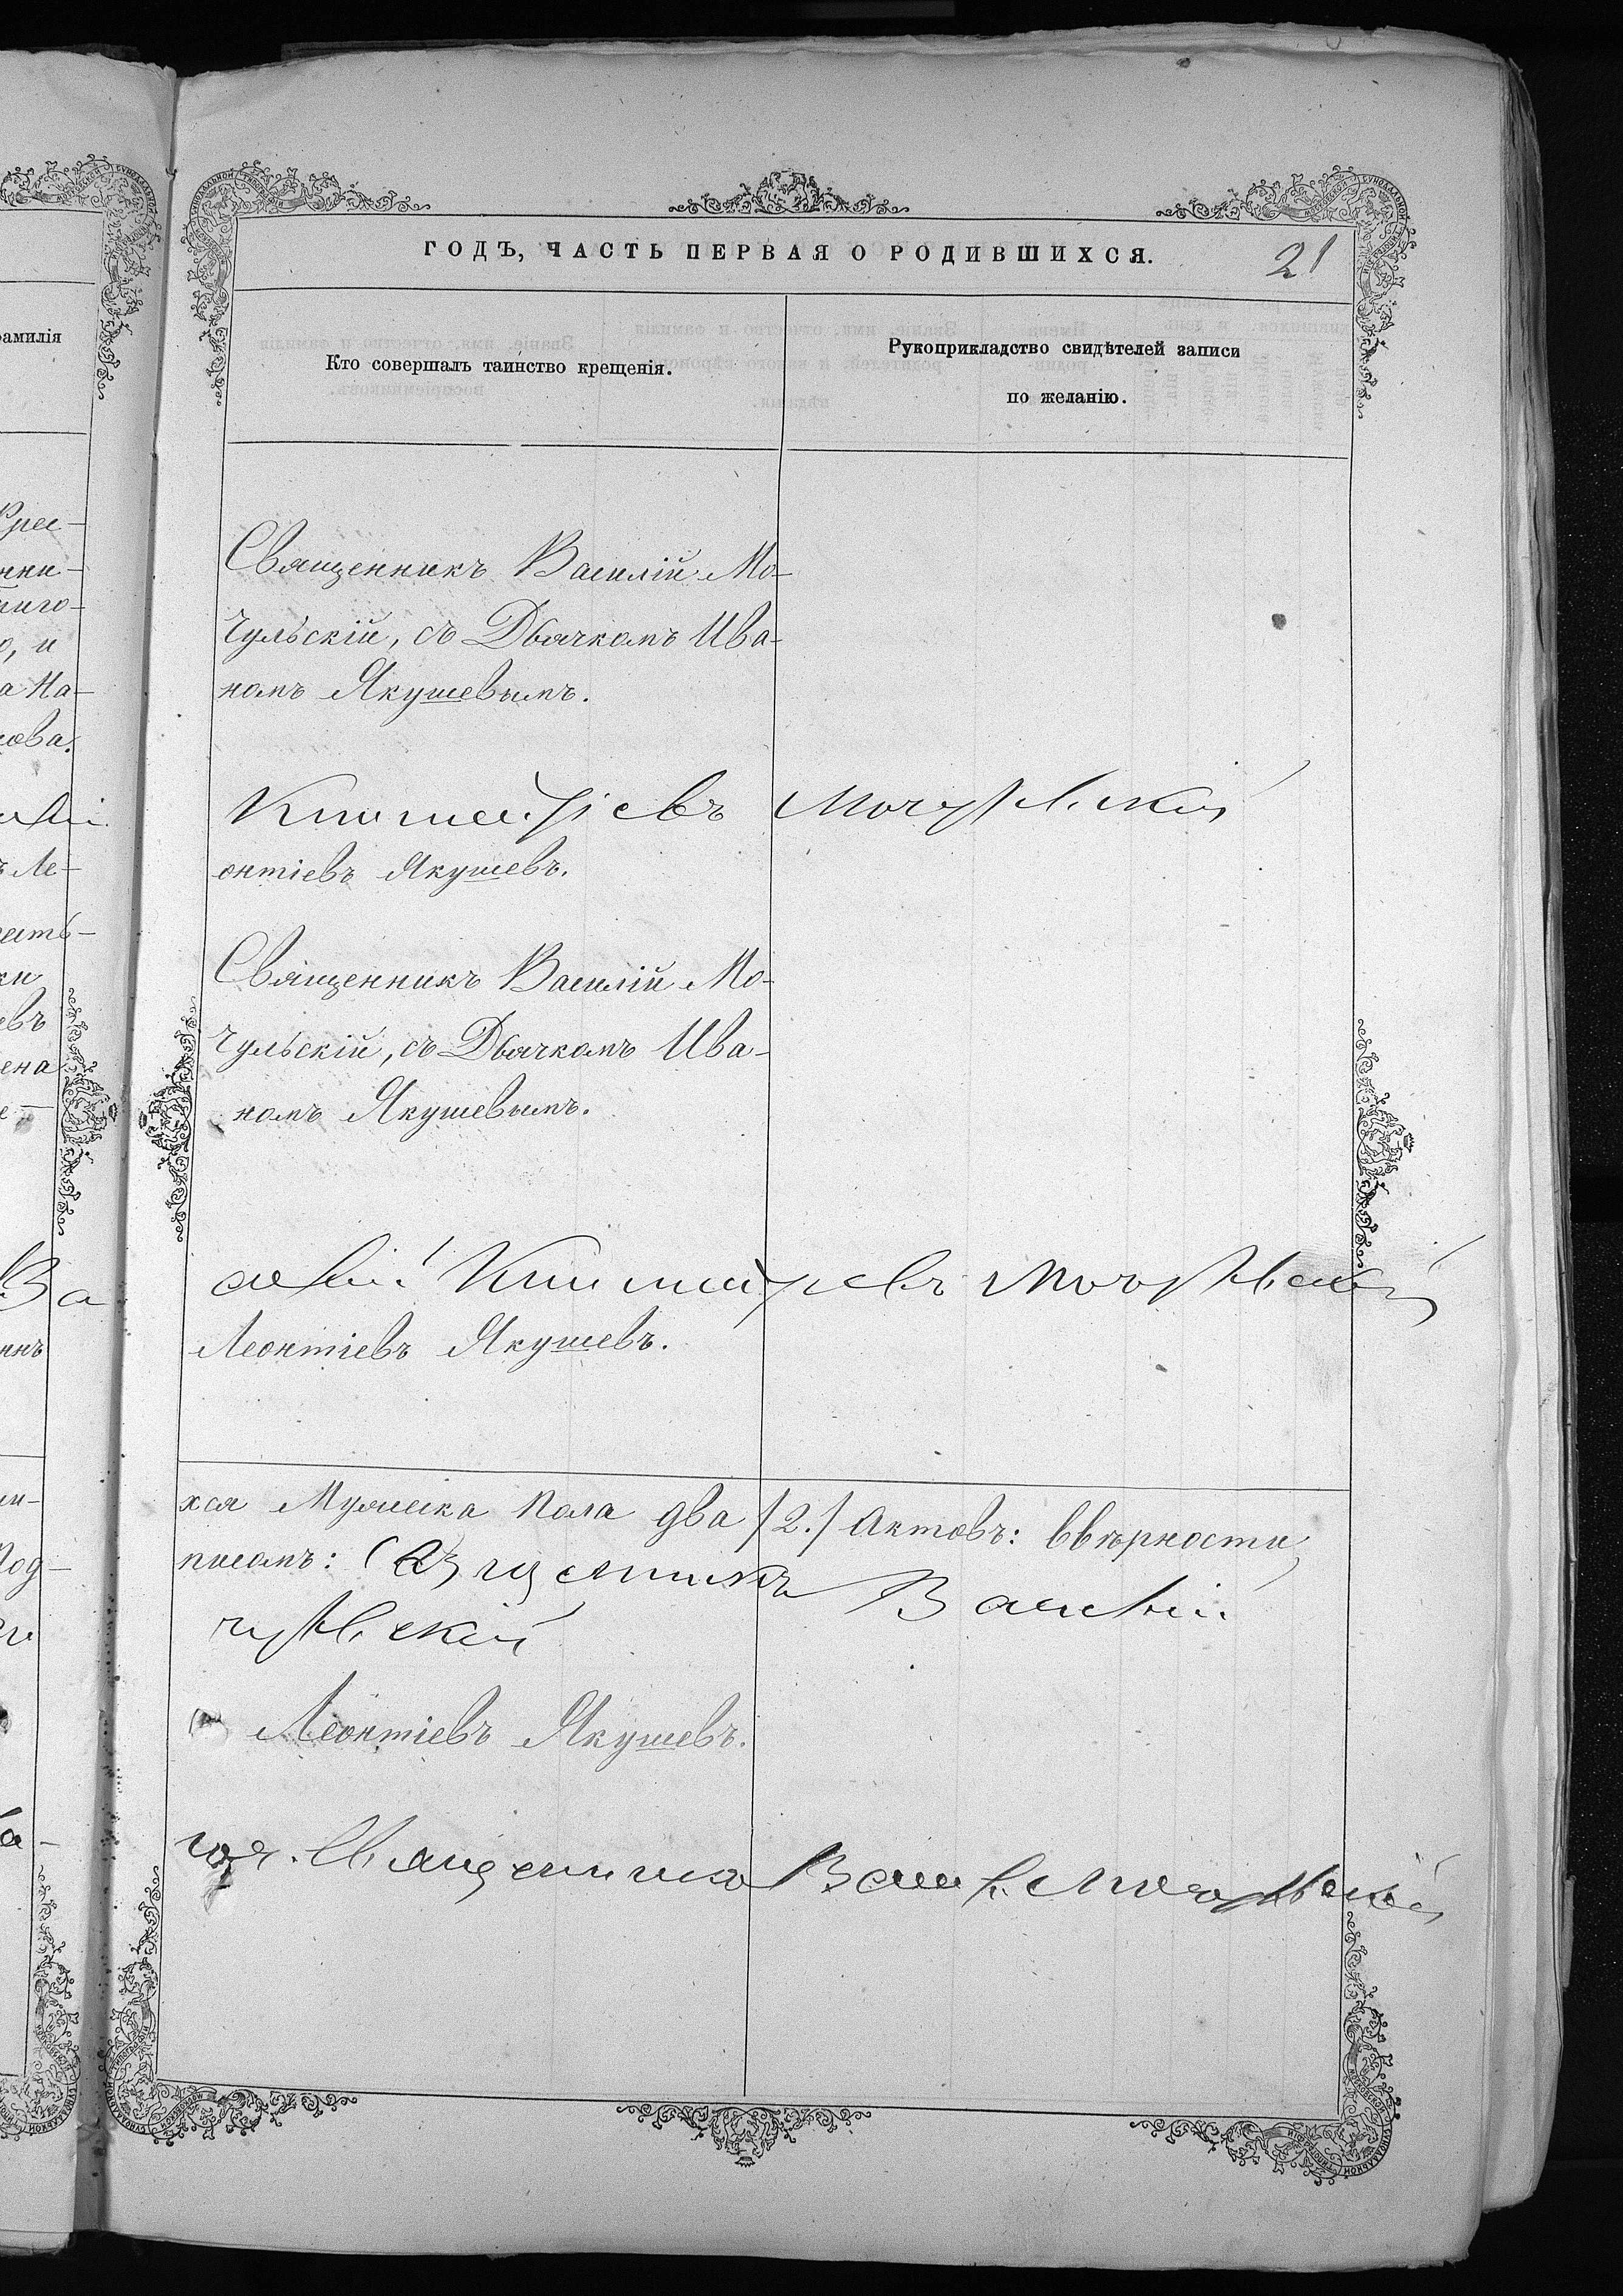 ГОДЪ, ЧАСТЬ ПЕРВАЯ О РОДИВШИХСЯ.
21
амилія
Кто совершалъ таинство крещенія.
Рукоприкладство свидѣтелей записи
по желанію.
Священникъ Василій Мо-
чульскій, съ Дьячкомъ Ива-
номъ Якушевымъ.
Мочульскій
онтіевъ Якушевъ.
Священникъ Василій Мо-
чульскій, съ Дьячкомъ Ива-
номъ Якушевымъ.
силій Мочульскій
Леонтіевъ Якушевъ.
хся Мужеска пола два /2./ Актовъ: ввѣрности
писомъ: Священникъ Василій
чульскій
Леонтіевъ Якушевъ.
Священникъ Васил. Мочульскій